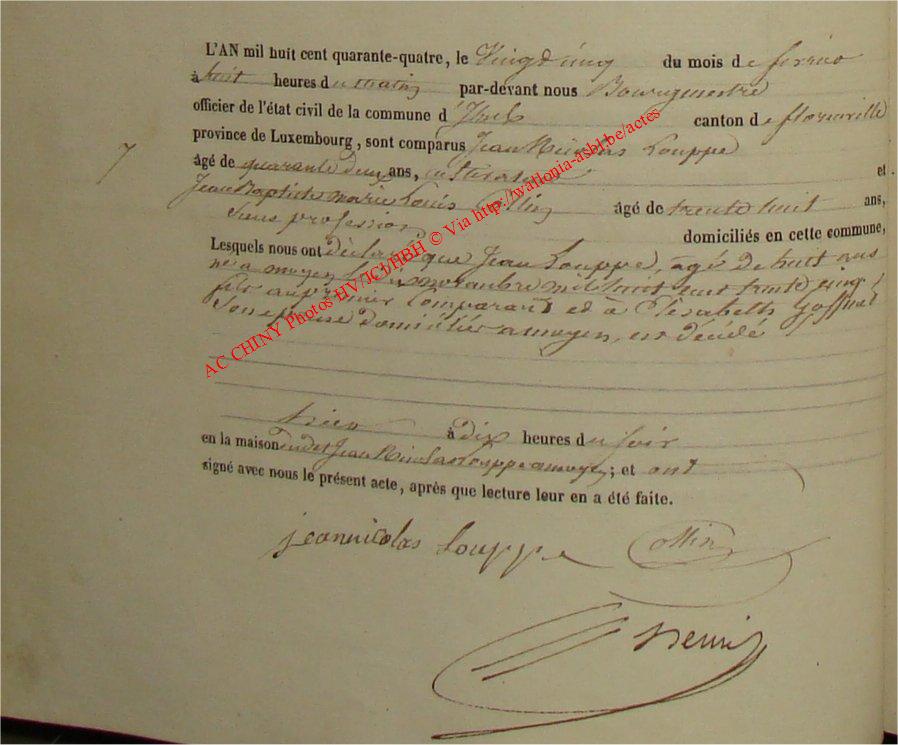 L'AN mil huit cent quarante-quatre, le Vingt cinq du mois de fevrier
à huit heures du matin par-devant nous Bourgmestre
officier de l'état civil de la commune d' canton de florenville
province de Luxembourg, sont comparus Jean Nicolas Louppe
7
âgé de quarante deux ans, cultivateur et
Jean Baptiste marie Louis Collin âgé de trente huit ans,
Sans profession domiciliés en cette commune,
Lesquels nous ont déclaré que Jean Louppe, âgé de huit ans
né a moyen le novembre mil huit cent trente cinq,
fils au premier Comparant et à Elisabeth Goffinet
Son epouse domicilié a moyen, est décédé
hier à dix heures du soir
en la maison dudit Jean Nicolas Louppe a moyen; et ont
signé avec nous le présent acte, après que lecture leur en a été faite.
jeannicolas Louppe Collin
AC CHINY Photos HV/JCI/HBH © Via http://wallonia-asbl.be/actes